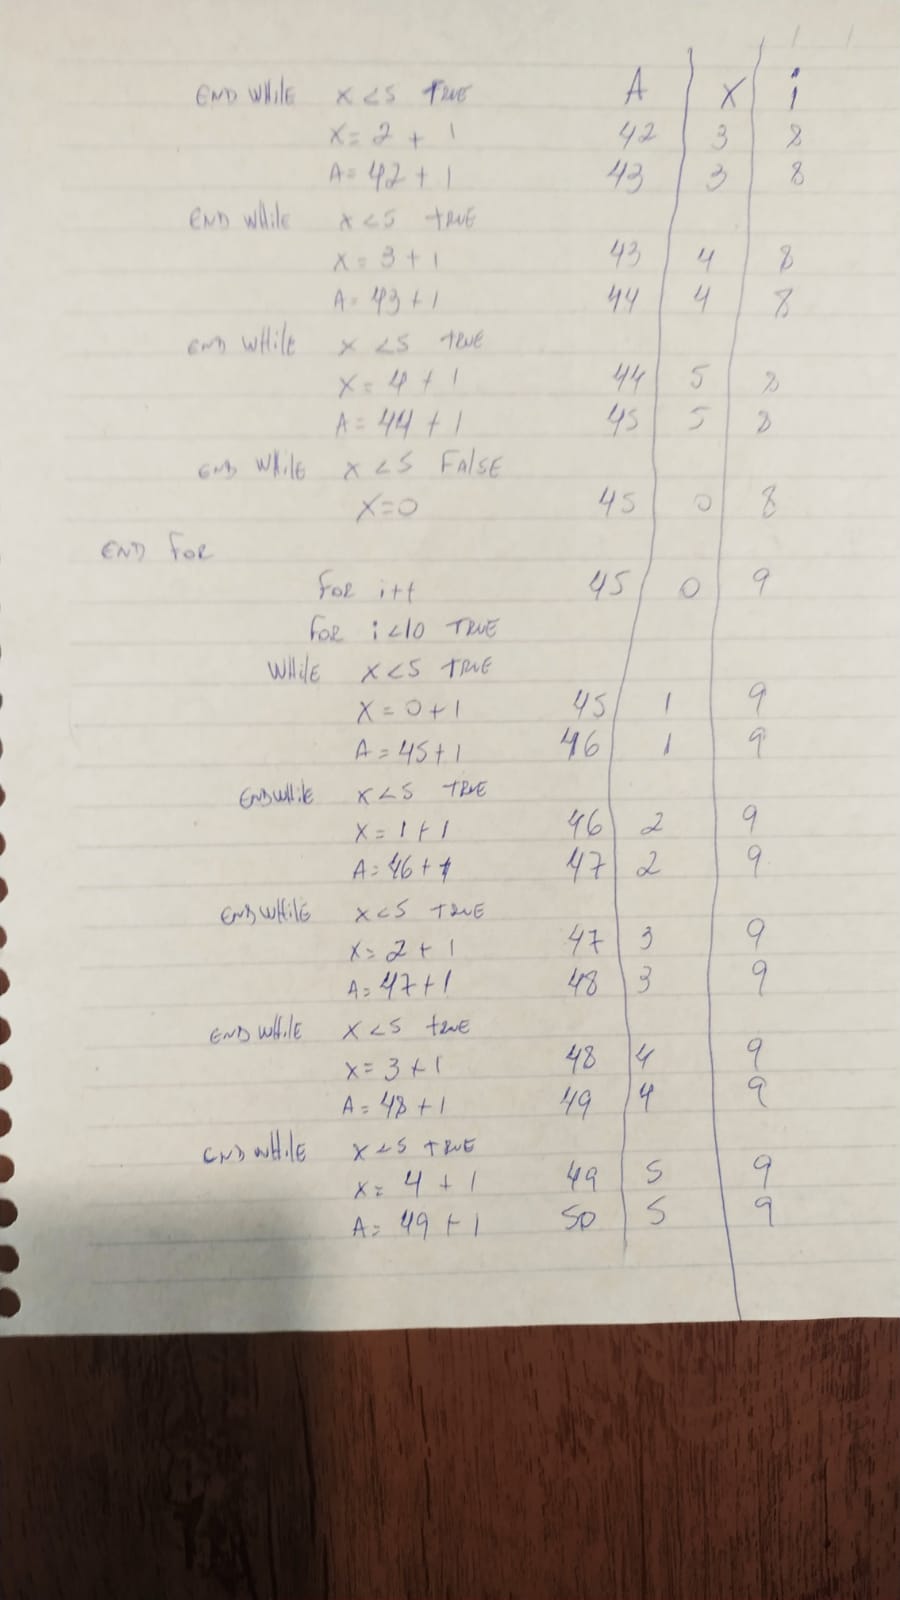 END While X<5 TRUE A X i
X=2+1 42 3 8
A=42+1 43 3 8
END While X<5 TRUE
X=3+1 43 4 8
A=43+1 44 4 8
END While X<5 TRUE
X=4+1 44 5 8
A=44+1 45 5 8
END While X<5 FALSE
X=0 45 0 8
END FOR
FOR i++ 45 0 9
FOR i<10 TRUE
While X<5 TRUE
X=0+1 45 1 9
A=45+1 46 1 9
END While X<5 TRUE
X=1+1 46 2 9
A=46+1 47 2 9
END While X<5 TRUE
X=2+1 47 3 9
A=47+1 48 3 9
END While X<5 TRUE
X=3+1 48 4 9
A=48+1 49 4 9
END While X<5 TRUE
X=4+1 49 5 9
A=49+1 50 5 9